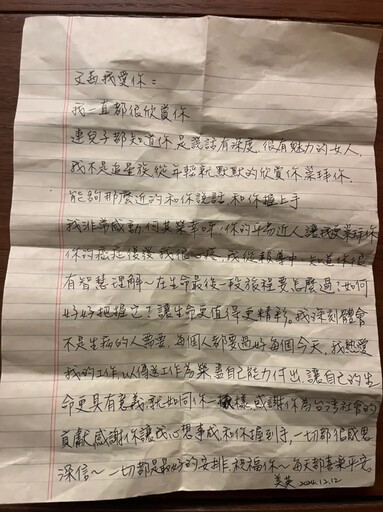 文茜我愛你:
我一直都很欣賞你
連兒子都知道你是說話有深度,很有魅力的女人,
我不是追星族從年輕就默默的欣賞你崇拜你.
能夠那麼近的和你說話和你握上手
我非常感動何其榮幸,你的平易近人讓我更崇拜你
你的 我很 ,從報導中知道你很
有智慧理解~在生命最後一段旅程要怎麼過?如何
好好把握它?讓生命更值得更精彩。我深刻體會
不是生病的人需要,每個人都要過好每個今天,我熱愛
我的工作以 工作為榮盡自己能力付出,讓自己的生
命更具有意義就如同你一樣,感謝你為台灣社會的
貢獻,感謝你讓我心想事成和你握到手,一切都很感恩
深信~一切都是最好的安排,祝福你~每天都喜樂平安
美英 2024.12.12